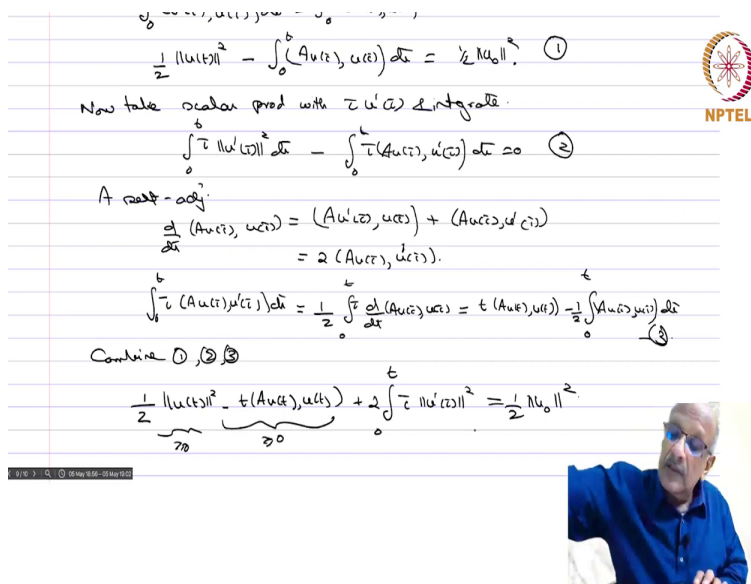 1/2 ||u(t)||² - ∫₀ᵗ (Au(τ), u(τ)) dτ = ½ ||u₀||². ①
Now take scalar prod with τ u'(τ) & integrate.
∫₀ᵗ τ ||u'(τ)||² dτ - ∫₀ᵗ τ(Au(τ), u'(τ)) dτ = 0 ②
A self-adj.
d/dτ (Au(τ), u(τ)) = (Au'(τ), u(τ)) + (Au(τ), u'(τ))
= 2 (Au(τ), u'(τ)).
∫₀ᵗ τ (Au(τ), u'(τ)) dτ = 1/2 ∫₀ᵗ τ d/dτ (Au(τ), u(τ)) = t(Au(t), u(t)) - 1/2 ∫₀ᵗ (Au(τ), u(τ)) dτ
③
Combine ①, ②, ③
1/2 ||u(t)||² - t(Au(t), u(t)) + 2 ∫₀ᵗ τ ||u'(τ)||² = 1/2 ||u₀||²
≥0 ≥0
NPTEL
9/10 05 May 18:56 - 05 May 19:03